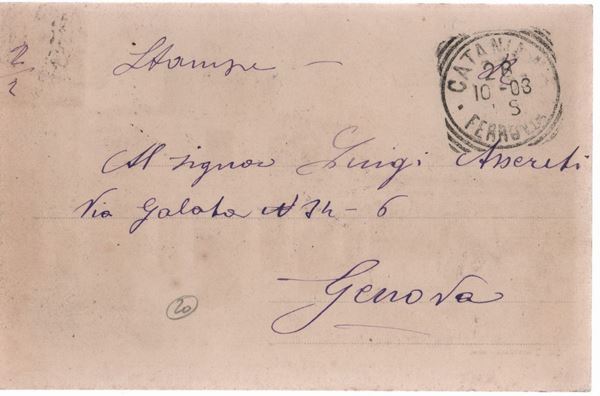 Stampe —
CATANIA
28
10 - 03
S
FERROVIA
Al signor Luigi Assereti
Via Galata N 34 - 6
Genova
20